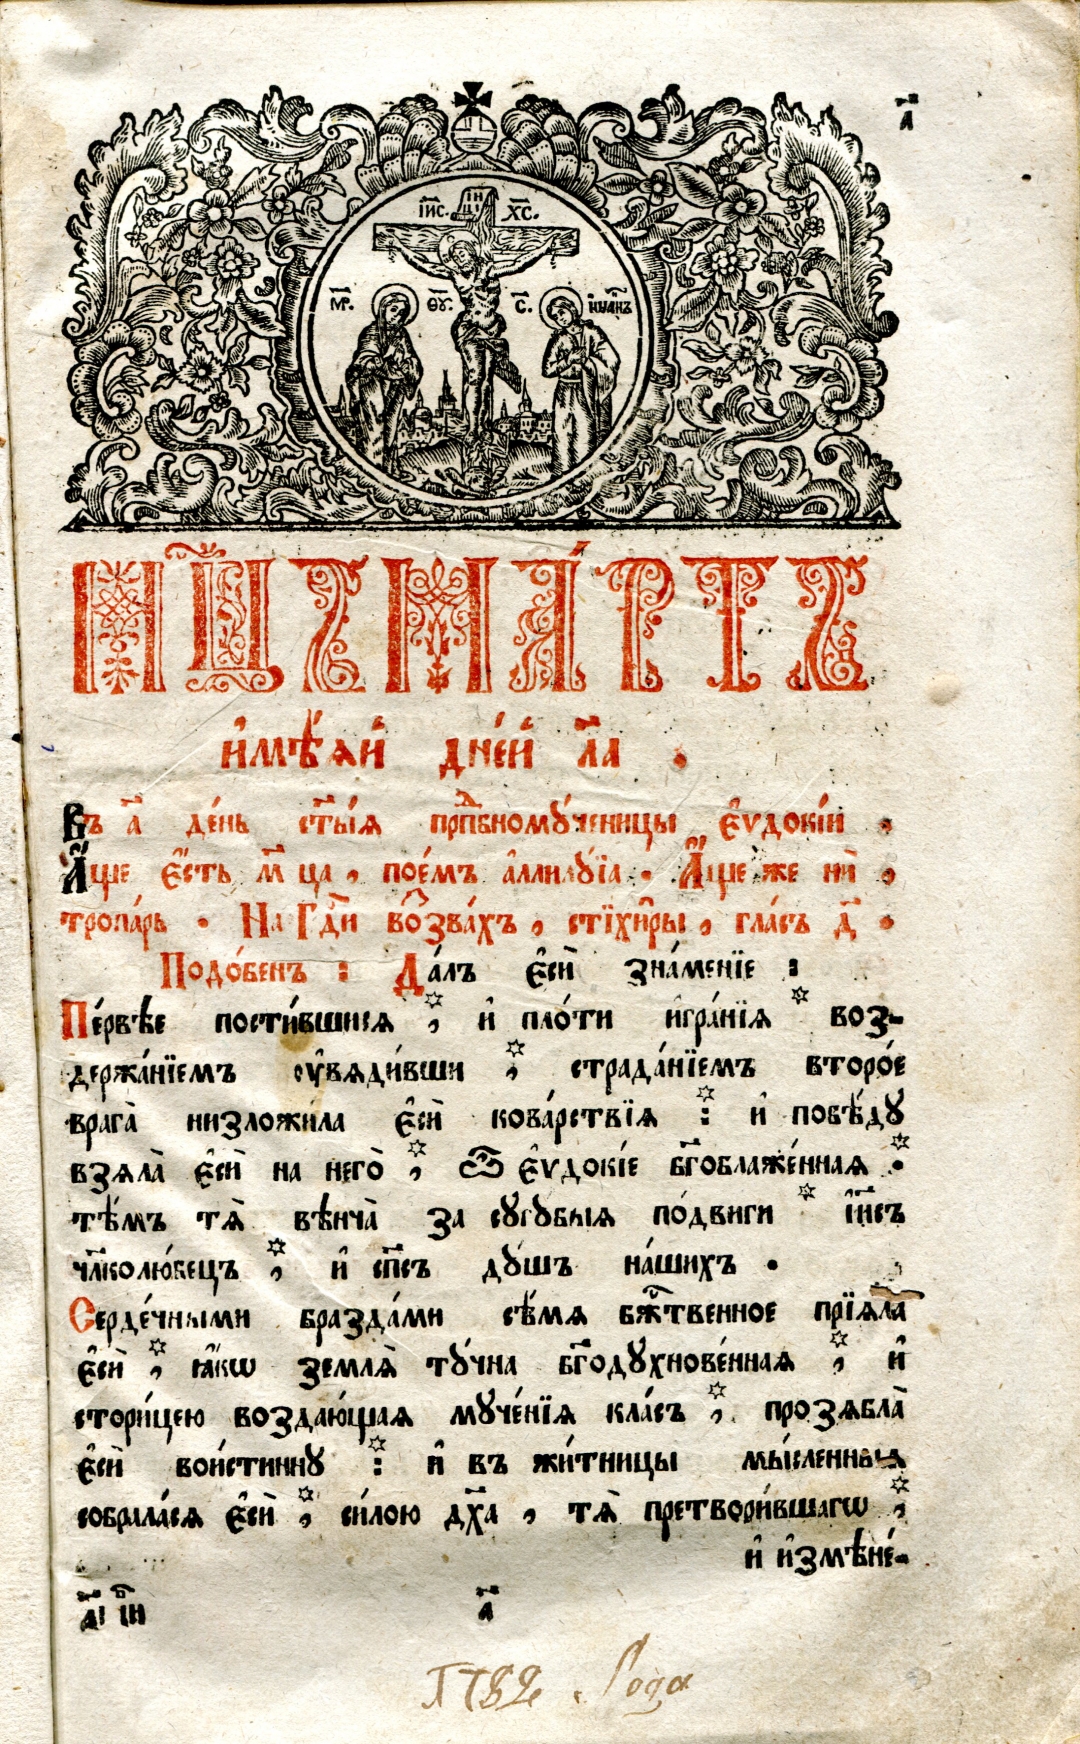 а҃
І҆Н҃ЦІ
І҆И҃С. Х҃С.
М҃Р. Ѳ҃Ꙋ. С҃. І҆ѠА́ННЪ
МЦ҃Ъ МА́РТЪ
и҆мѣ́ѧй дне́й л҃а .
Въ а҃ де́нь ст҃ы́ѧ прп҃бномꙋ́ченицы є҆ѵдокі́и .
А҆́ще є҆́сть м҃ ца , пое́мъ а҆ллилꙋ́їа . А҆́ще же нѝ ,
тропа́рь . На Гд҃и воззва́хъ , стїхи̑ры , гла́съ д҃ .
Подо́бенъ : Да́лъ є҆сѝ зна́менїе :
Пе́рвѣе пости́вшисѧ , и҆ пло́ти и҆гра́нїѧ воз-
держа́нїемъ ᲂу҆вѧди́вши , страда́нїемъ второ́е
врага̀ низложи́ла є҆сѝ кова́рствїѧ : и҆ побѣ́дꙋ
взѧла̀ є҆сѝ на него̀ , ѽ є҆ѵдокі́е бг҃облаже́ннаѧ .
тѣ́мъ тѧ̀ вѣнча̀ за сᲂугꙋ́быѧ по́двиги і҆и҃съ
чл҃колю́бецъ , и҆ сп҃съ дꙋ́шъ на́шихъ .
Серде́чными бразда́ми сѣ́мѧ бж҃твенное прїѧла̀
є҆сѝ , ꙗ҆́кѡ землѧ̀ тꙋ́чна бг҃одꙋхнове́ннаѧ , и҆
стори́цею воздаю́щаѧ мꙋче́нїѧ кла́съ , прозѧбла̀
є҆сѝ вои́стиннꙋ : и҆ въ жи́тницы мы́сленныѧ
собрала́сѧ є҆сѝ , си́лою дх҃а , тѧ̀ претвори́вшагѡ ,
и҆ и҆змѣне́-
а҃
1782 . Года